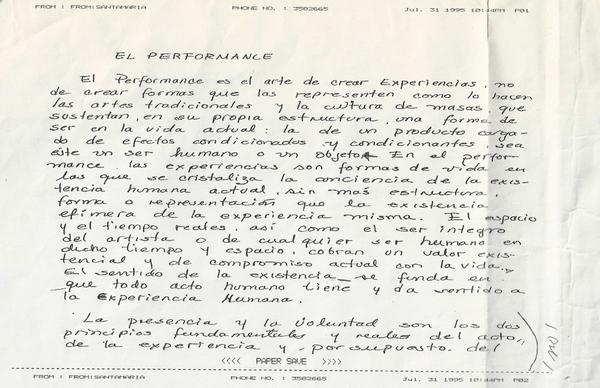 FROM : FROM:SANTAMARIA PHONE NO. : 3582665 Jul. 31 1995 10:44PM P01
EL PERFORMANCE
El Performance es el arte de crear Experiencias, no
de crear formas que las representen como lo hacen
las artes tradicionales y la cultura de masas, que
sustentan, en su propia estructura, una forma de
ser en la vida actual: la de un producto carga-
do de efectos condicionados y condicionantes, sea
éste un ser humano o un objeto. En el perfor-
mance, las experiencias son formas de vida en
las que se cristaliza la conciencia de la exis-
tencia humana actual, sin más estructura,
forma o representación que la existencia
efímera de la experiencia misma. El espacio
y el tiempo reales, así como el ser íntegro
del artista o de cualquier ser humano en
dicho tiempo y espacio, cobran un valor exis-
tencial y de compromiso actual con la vida.
El sentido de la existencia se funda en
que todo acto humano tiene y da sentido a
la Experiencia Humana.
La presencia y la voluntad son los dos
principios fundamentales y reales del acto,
de la experiencia y, por supuesto, del
<<<< PAPER SAVE >>>>
FROM : FROM:SANTAMARIA PHONE NO. : 3582665 Jul. 31 1995 10:44PM P02